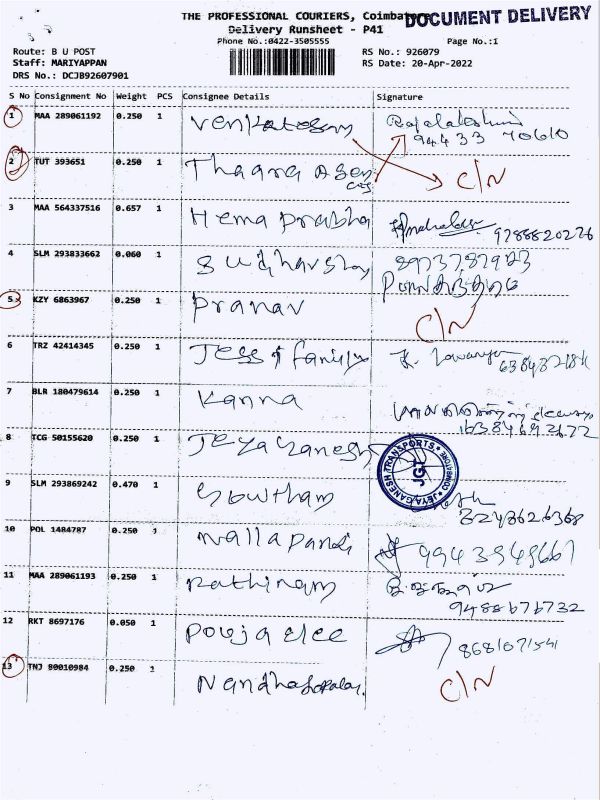 THE PROFESSIONAL COURIERS, Coimbatore
DOCUMENT DELIVERY
Delivery Runsheet - P41
Phone No.:0422-3505555 Page No.:1
Route: B U POST RS No.: 926079
Staff: MARIYAPPAN RS Date: 20-Apr-2022
DRS No.: DCJB92607901
S No Consignment No Weight PCS Consignee Details Signature
1 MAA 289061192 0.250 1 Venkatesam
94433 70610
2 TUT 393651 0.250 1 Thaara Agen C/N
cies
3 MAA 564337516 0.657 1 Hema prabha
9788820276
4 SLM 293833662 0.060 1 Sudharshan
5 KZY 6863967 0.250 1 Pranav C/N
6 TRZ 42414345 0.250 1 Jess & family K.
7 BLR 180479614 0.250 1 Kanna
8 TCG 50155620 0.250 1 Jeya Ganesh
JEYA GANESH TRANSPORTS
JGT
COIMBATORE
9 SLM 293869242 0.470 1 Gowtham
10 POL 1484787 0.250 1 Nallapandi
11 MAA 289061193 0.250 1 Rathinam
9488676732
12 RKT 8697176 0.050 1 Pooja elec
8681071541
13 TNJ 80010984 0.250 1 Nandhagopalan. C/N